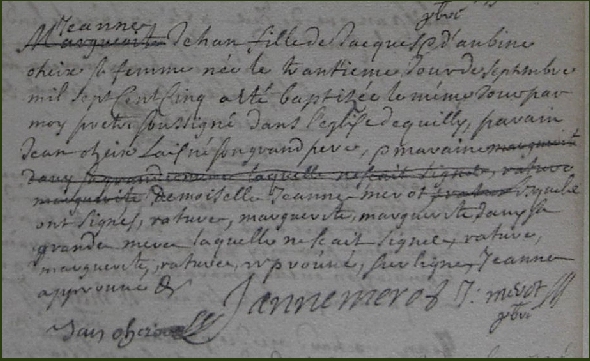 Jeanne
Marguerite Jehan fille de Jacques & d'aubine
oheix sa femme née le trantieme Jour de septembre
mil sept Cent Cinq a eté baptizée le même Jour par
moy pretre soussigné dans l'eglise de quilly, parain
Jean oheix Laisné son grand pere, & maraine marguerite
sa grandmere laquelle ne scait signer, rature
marguerite Demoiselle Jeanne merot rature lesquels
ont signes, rature, marguerite, marguerite sa
grande mere laquelle ne scait signer, rature,
marguerite, rature, approuvé, sur ligne, Jeanne
approuvé &
Jannemerot J: merot
Jan oheix